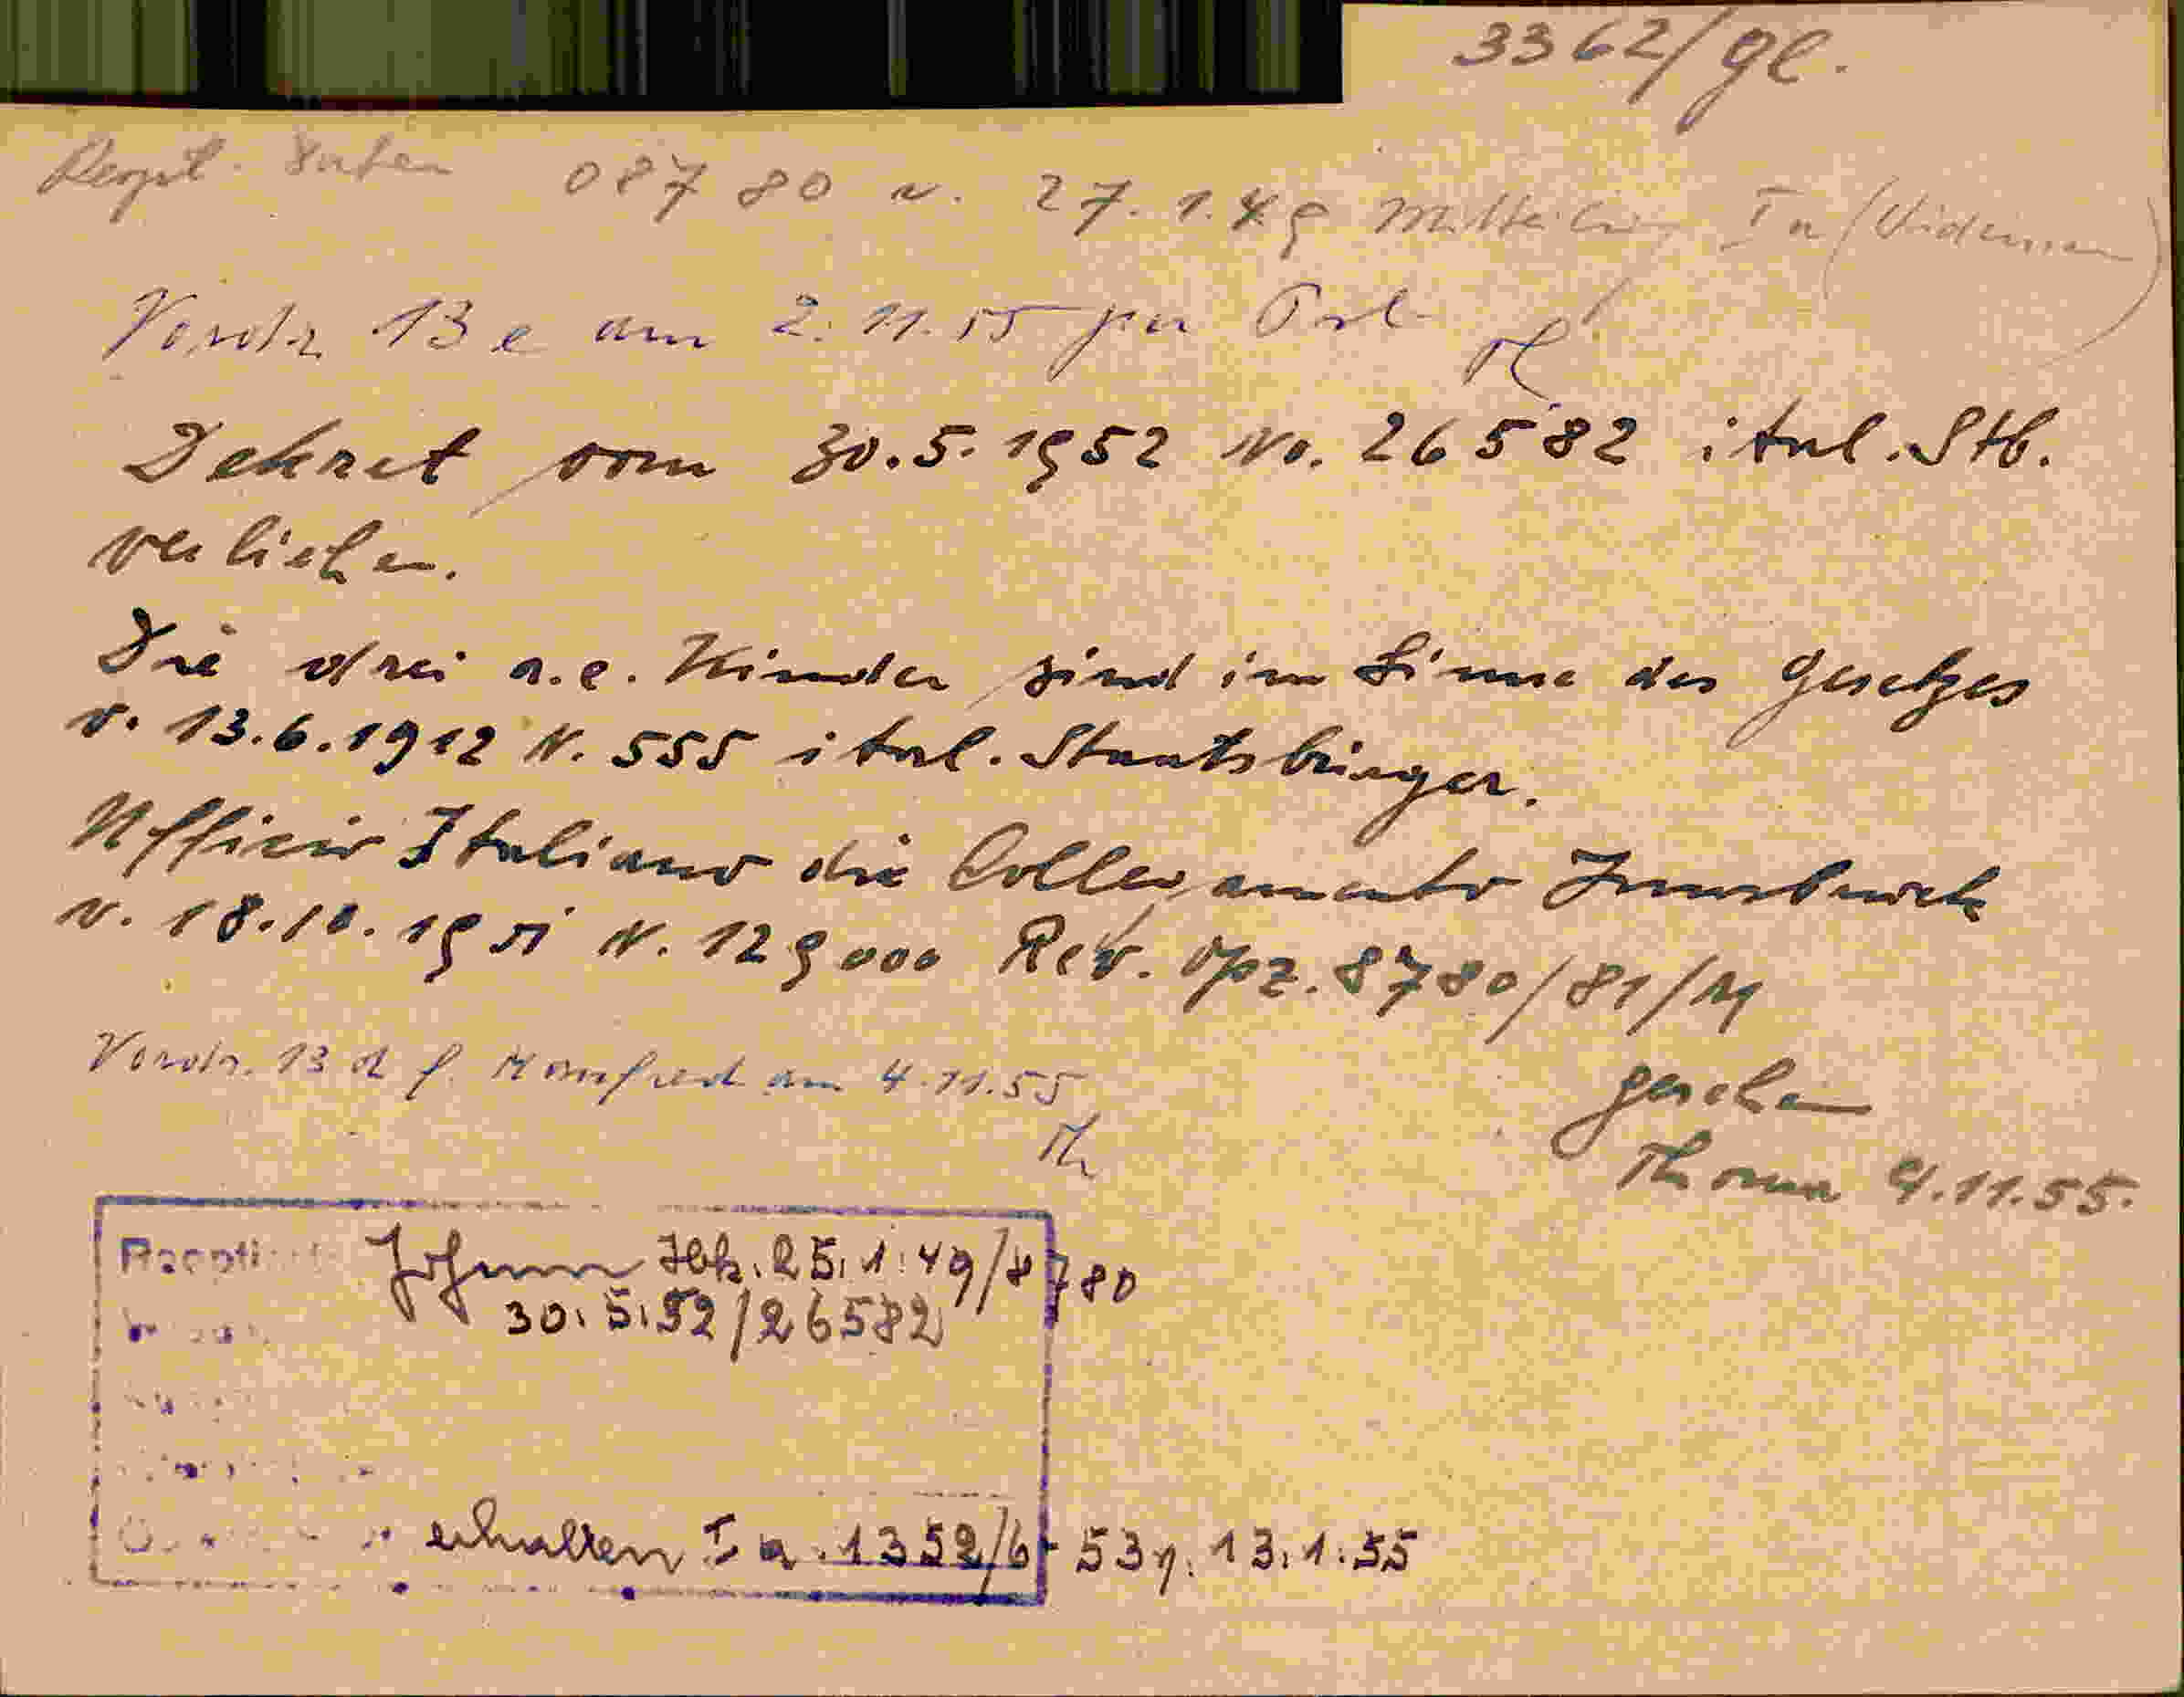 3362/gl.
08780 v. 27.1.49 Mitteilung Ia (Widemann)
Vordr. 13 e am 2.11.55 per Post
Dekret vom 30.5.1952 No. 26582 ital. Stb.
verliehen.
Die drei a.e. Kinder sind im Sinne des Gesetzes
v. 13.6.1912 N. 555 ital. Staatsbürger.
Ufficio Italiano die Collegamento Innsbruck
v. 18.10.1951 N. 129000 Rev. Opz. 8780/81/M
Vordr. 13 d f. Manfred am 4.11.55
Th
gesehen
Thoma 4.11.55.
Johann Ibk. 25.1.49/8780
30.5.52/26582
erhalten Ia. 1352/6-53 v. 13.1.55